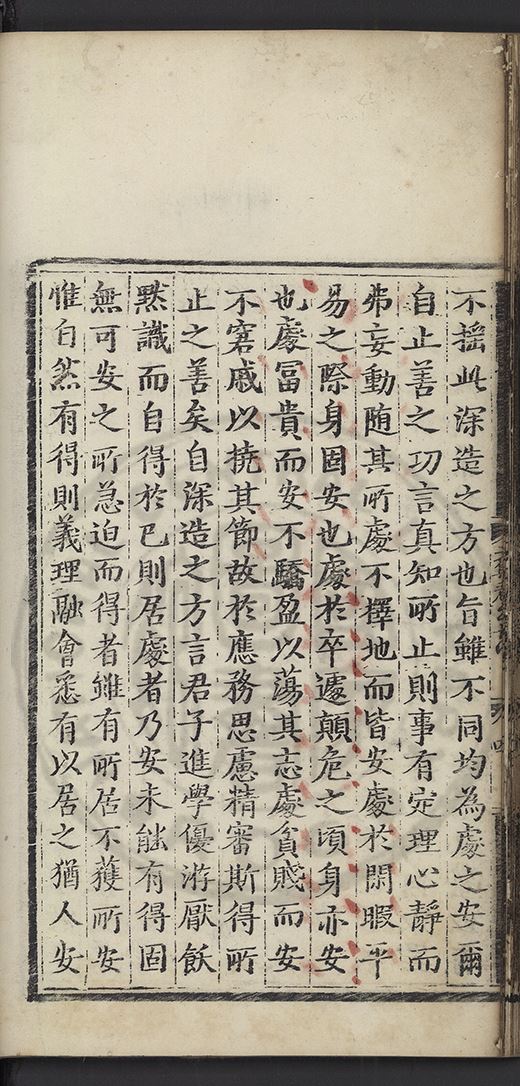 不摇此深造之方也旨雖不同均為處之安爾
自止善之功言真知所止則事有定理心靜而
弗妄動随其所處不擇地而皆安處於閑暇平
易之際身固安也處於卒遽顛危之頃身亦安
也處冨貴而安不驕盈以蕩其志處貧賤而安
不窘戚以撓其節故於應務思慮精審斯得所
止之善矣自深造之方言君子進學優游厭飫
黙識而自得於已則居處者乃安未能有得固
無可安之所急迫而得者雖有所居不獲所安
惟自然有得則義理融會悉有以居之猶人安